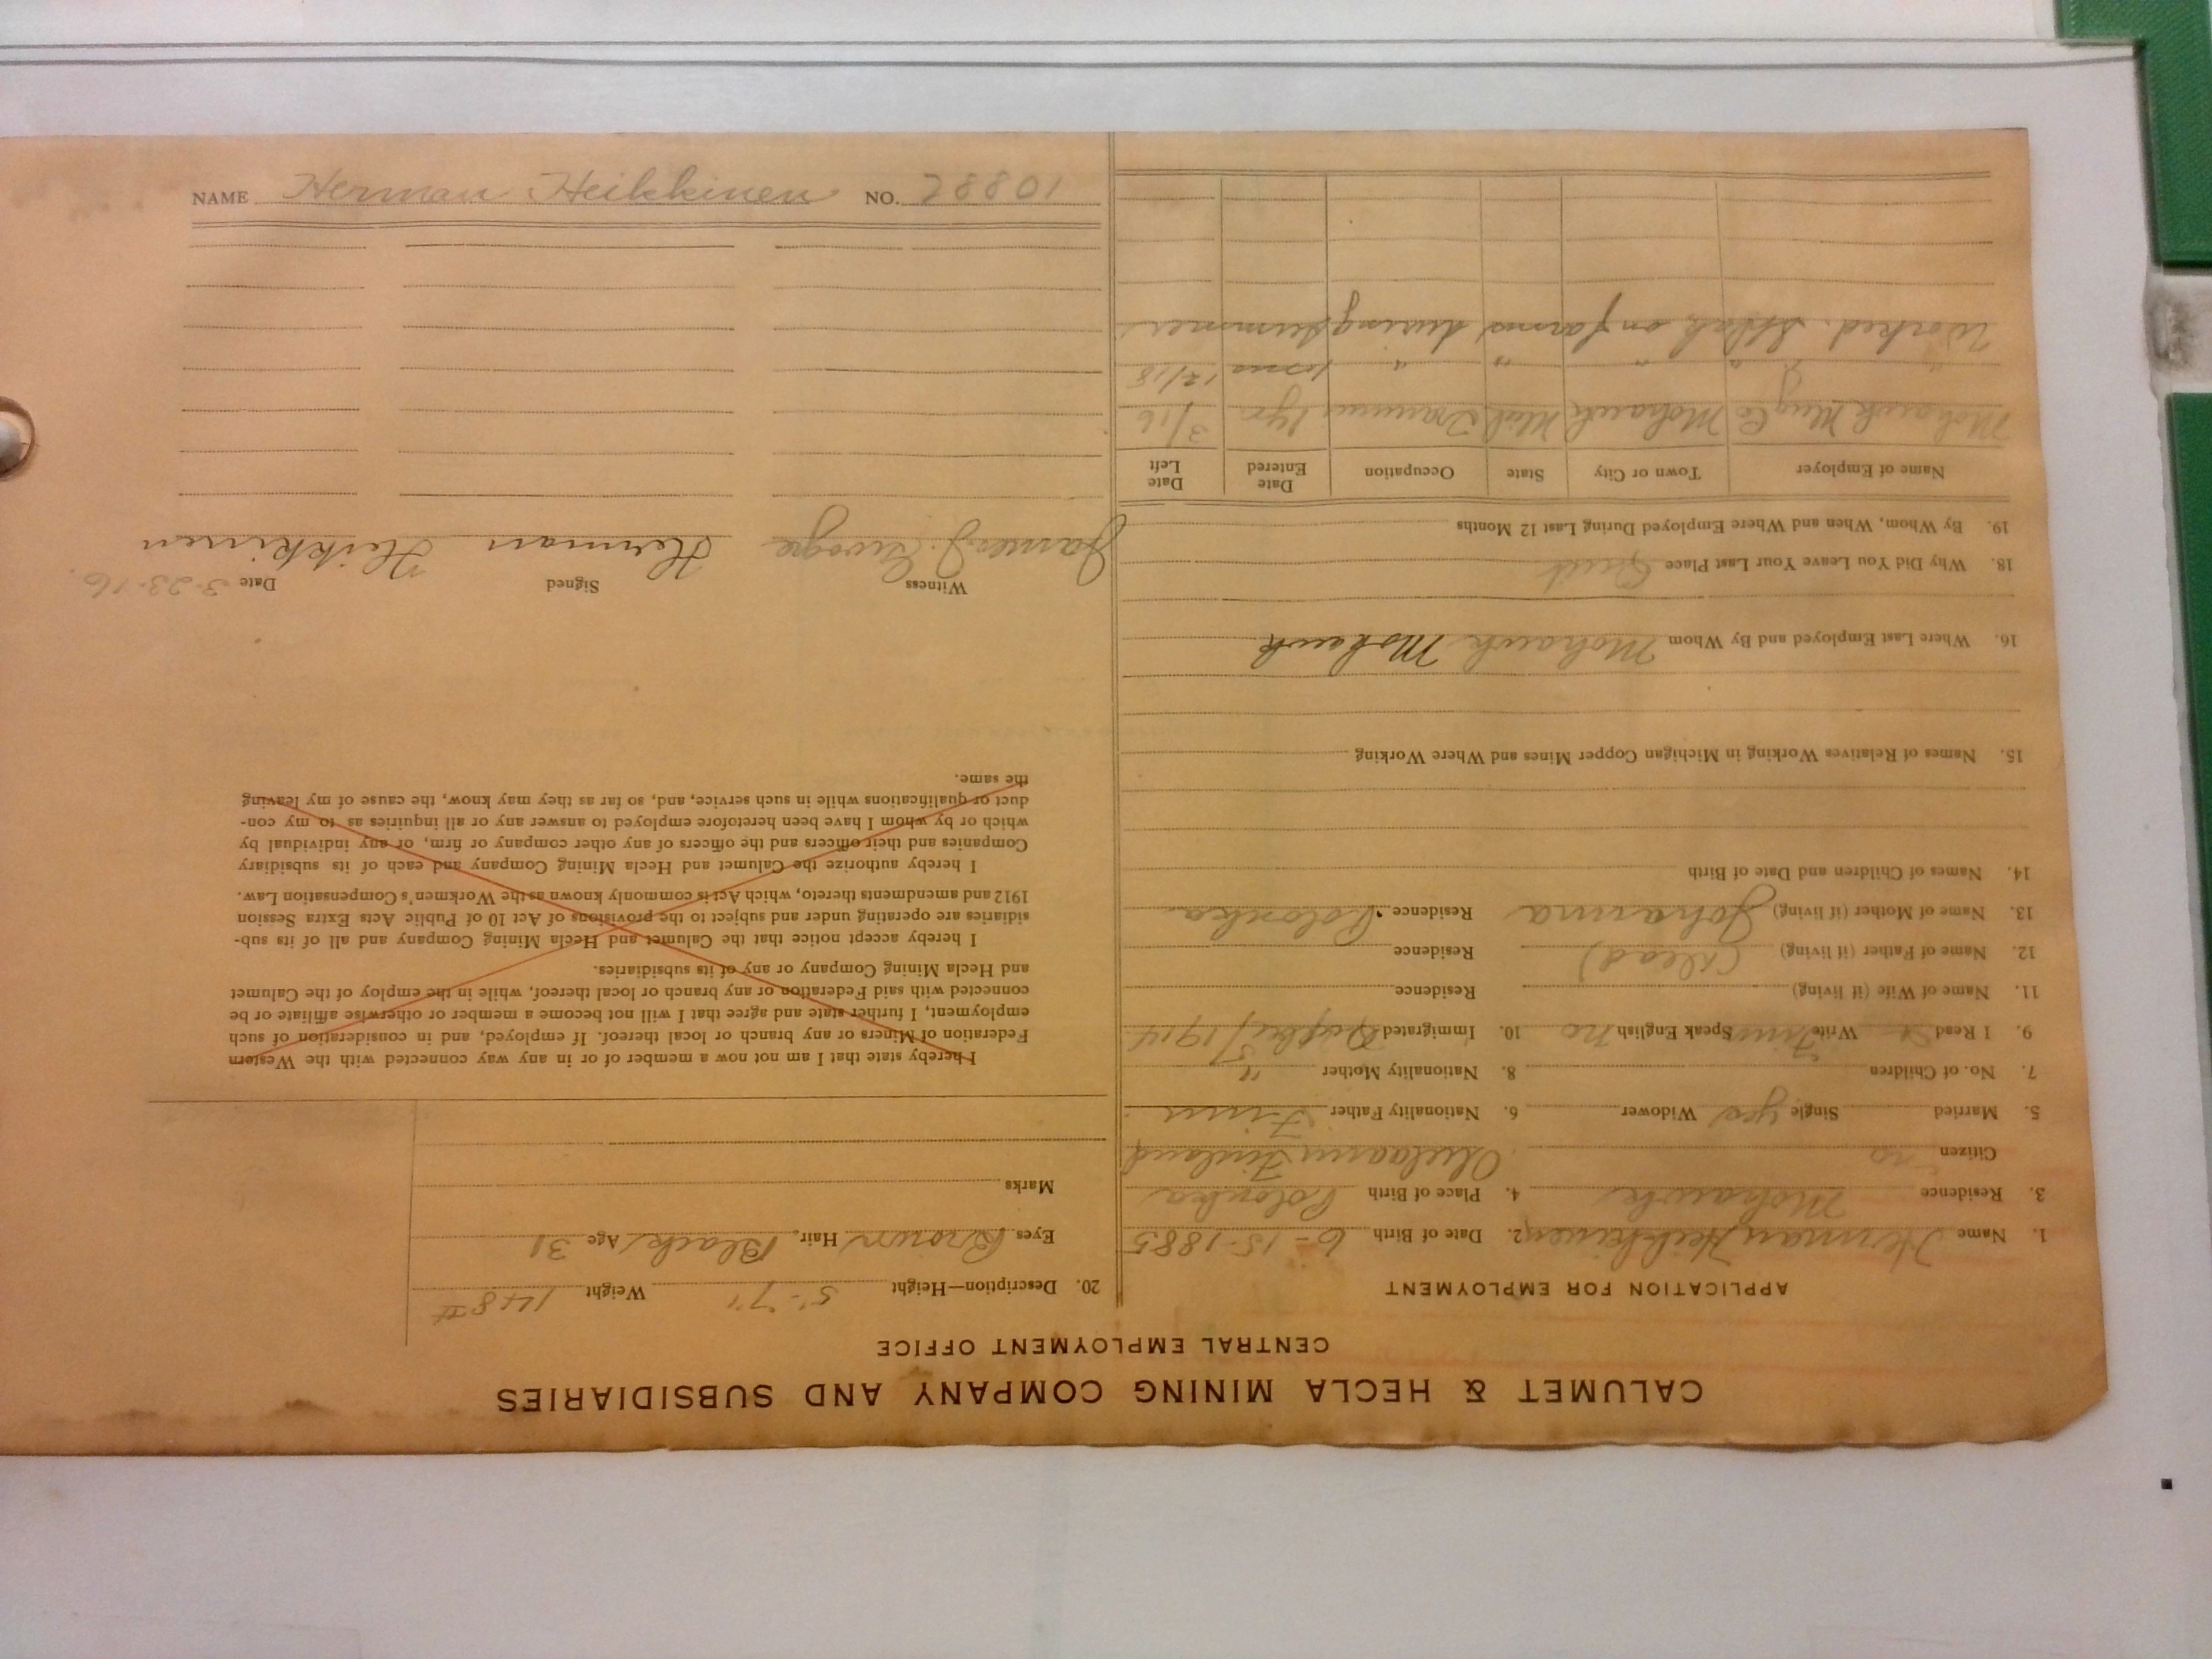 CALUMET & HECLA MINING COMPANY AND SUBSIDIARIES
CENTRAL EMPLOYMENT OFFICE
APPLICATION FOR EMPLOYMENT
1. Name Herman Heikkinen 2. Date of Birth 6-15-1885
3. Residence Mohawk 4. Place of Birth Polonka
Citizen no Finland
5. Married Single yes Widower 6. Nationality Father Finn
7. No. of Children 8. Nationality Mother "
9. I Read Write Finn Speak English no 10. Immigrated 1914
11. Name of Wife (if living) Residence
12. Name of Father (if living) (dead) Residence
13. Name of Mother (if living) Johanna Residence Polonka
14. Names of Children and Date of Birth
15. Names of Relatives Working in Michigan Copper Mines and Where Working
16. Where Last Employed and By Whom Mohawk Mohawk
18. Why Did You Leave Your Last Place Quit
19. By Whom, When and Where Employed During Last 12 Months
Name of Employer Town or City State Occupation Date Entered Date Left
Mohawk Mng Co Mohawk Mich Trammer 1 yr 3/16
" " " " " 12/18
Worked on farms during summer
20. Description—Height 5'-7" Weight 148#
Eyes Brown Hair, Black Age 31
Marks
I hereby state that I am not now a member of or in any way connected with the Western
Federation of Miners or any branch or local thereof. If employed, and in consideration of such
employment, I further state and agree that I will not become a member or otherwise affiliate or be
connected with said Federation or any branch or local thereof, while in the employ of the Calumet
and Hecla Mining Company or any of its subsidiaries.
I hereby accept notice that the Calumet and Hecla Mining Company and all of its sub-
sidiaries are operating under and subject to the provisions of Act 10 of Public Acts Extra Session
1912 and amendments thereto, which Act is commonly known as the Workmen's Compensation Law.
I hereby authorize the Calumet and Hecla Mining Company and each of its subsidiary
Companies and their officers and the officers of any other company or firm, or any individual by
which or by whom I have been heretofore employed to answer any or all inquiries as to my con-
duct or qualifications while in such service, and, so far as they may know, the cause of my leaving
the same.
Witness Signed Date 3-23-16
James J. Herman Heikkinen
NAME Herman Heikkinen NO. 28801